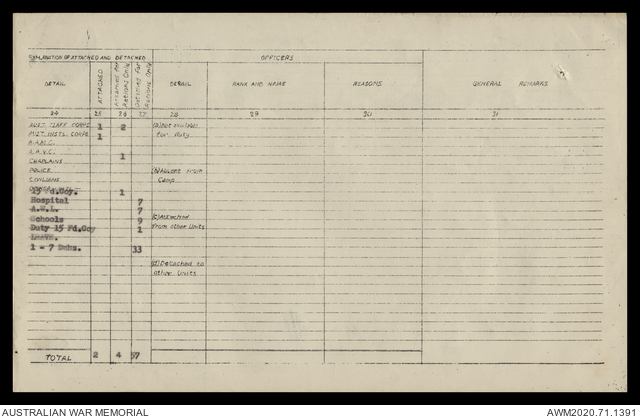 EXPLANATION OF ATTACHED AND DETACHED OFFICERS
DETAIL ATTACHED ATTACHED FOR Rations Only Detached for Rations Only DETAIL RANK AND NAME REASONS GENERAL REMARKS
24 25 26 27 28 29 30 31
AUST. STAFF CORPS 1 2 (a) Not available
AUST. INSTL. CORPS 1 for duty
A.A.M.C.
A.A.V.C. 1
CHAPLAINS
POLICE (b) Absent from
CIVILIANS Camp
15 Fd.Coy. 1
Hospital 7
A.W.L. 7
Schools 9 (c) Attached
Duty 15 Fd.Coy 1 from other Units
Leave.
1 - 7 Dets. 33
(d) Detached to
other Units
TOTAL 2 4 57
AUSTRALIAN WAR MEMORIAL AWM2020.71.1391